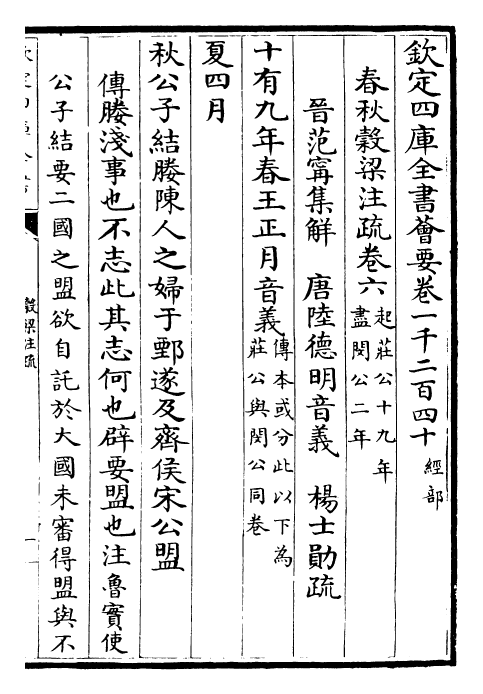 欽定四庫全書薈要卷一千二百四十經部
春秋穀梁注疏卷六起莊公十九年
盡閔公二年
晉范甯集解　唐陸德明音義　楊士勛疏
十有九年春王正月音義傳本或分此以下為
莊公與閔公同卷
夏四月
秋公子結媵陳人之婦于鄄遂及齊侯宋公盟
傳媵淺事也不志此其志何也辟要盟也注魯實使
公子結要二國之盟欲自託於大國未審得盟與不
穀梁注疏